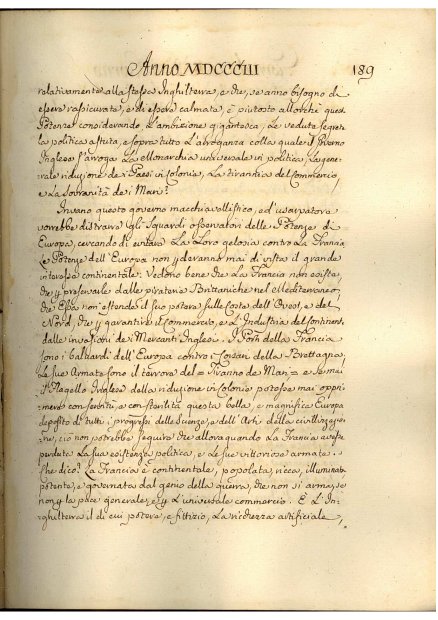 Anno MDCCCIII 189
relativamente alla stessa Inghilterra, e che, se anno bisogno di
essere rassicurate, e di essere calmate, è piutosto allorchè queste
Potenze considerando, L'ambizione gigantesca, Le vedute segrete
la politica astuta, e sopra tutto L'arroganza colla quale il Governo
Inglese s'arroga La Monarchia universale in politica, La gene-
rale riduzione de i Paesi in Colonia, La tirannia del Commercio,
e La Sovranità de i Mari?
Invano questo governo macchiavellistico, ed usurpatore
vorrebbe distrarre gli Sguardi osservatori delle Potenze di
Europa, cercando di eccitare La Loro gelosia contro La Francia
Le Potenze dell'Europa non perderanno mai di vista il grande
interesse continentale. Vedono bene che La Francia non esiste,
che p preservarle dalle piraterie Brittaniche nel Mediterraneo,
che Essa non estende il suo potere sulle Coste dell'Ovest, e del
Nord, che p garantire il Commercio, e L'Industria del Continente
dalle invasioni de Mercanti Inglesi. I Porti della Francia
sono i baluardi dell'Europa contro i Corsari della Brettagna,
Le sue Armate sono il terrore del = Tiranno de Mari = e se mai
il flagello Inglese della riduzione in Colonia potesse mai oppri-
mere con ferità, e con sterilità questa bella, e magnifica Europa
deposito di tutti i progressi delle Scienze, e dell'Arti della civilizzazio-
ne, ciò non potrebbe seguire che allora quando La Francia avesse
perduta La sua esistenza politica, e Le sue vittoriose armate.
Che dico? La Francia è continentale, popolata, ricca, illuminata
potente, e governata dal genio della guerra, che non si arma, se
non p la pace generale, e p L'universale commercio. E L'In-
ghilterra il di cui potere, e fittizio, La ricchezza artificiale,